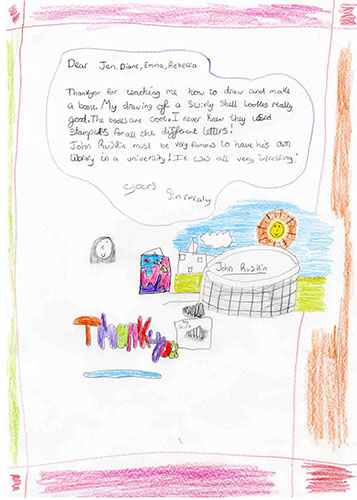 Dear Jen Diane, Emma, Rebecca
Thankyou for teaching me how to draw and make
a book. My drawing of a Swirly Shell lookes really
good. The books are cool. I never knew they used
stampers for all the different letters!
John Ruskin must be very famous to have his own
library in a university! It was all very intresting!
yours Sincerely
John Ruskin
Thankyou